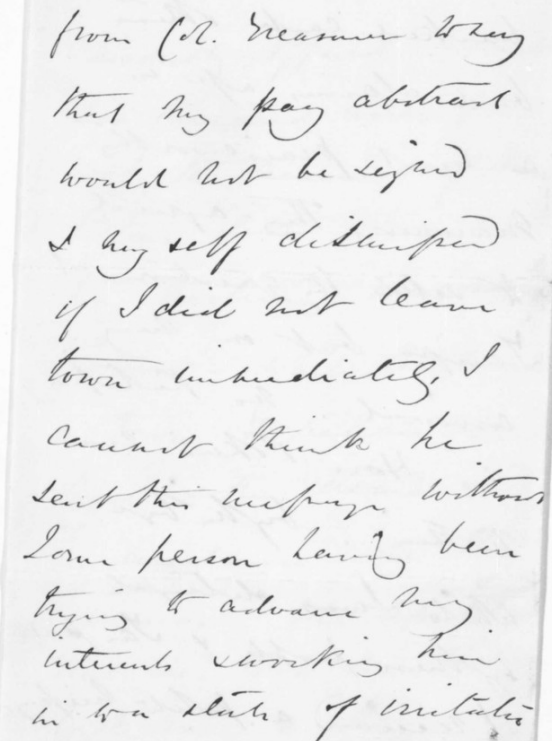 from Col. Treasurer to say
that my pay abstract
would not be signed
& my self dismissed
if I did not leave
town immediately. I
cannot think he
sent this message without
some person having been
trying to advance my
interests & working him
in to a state of irritatio